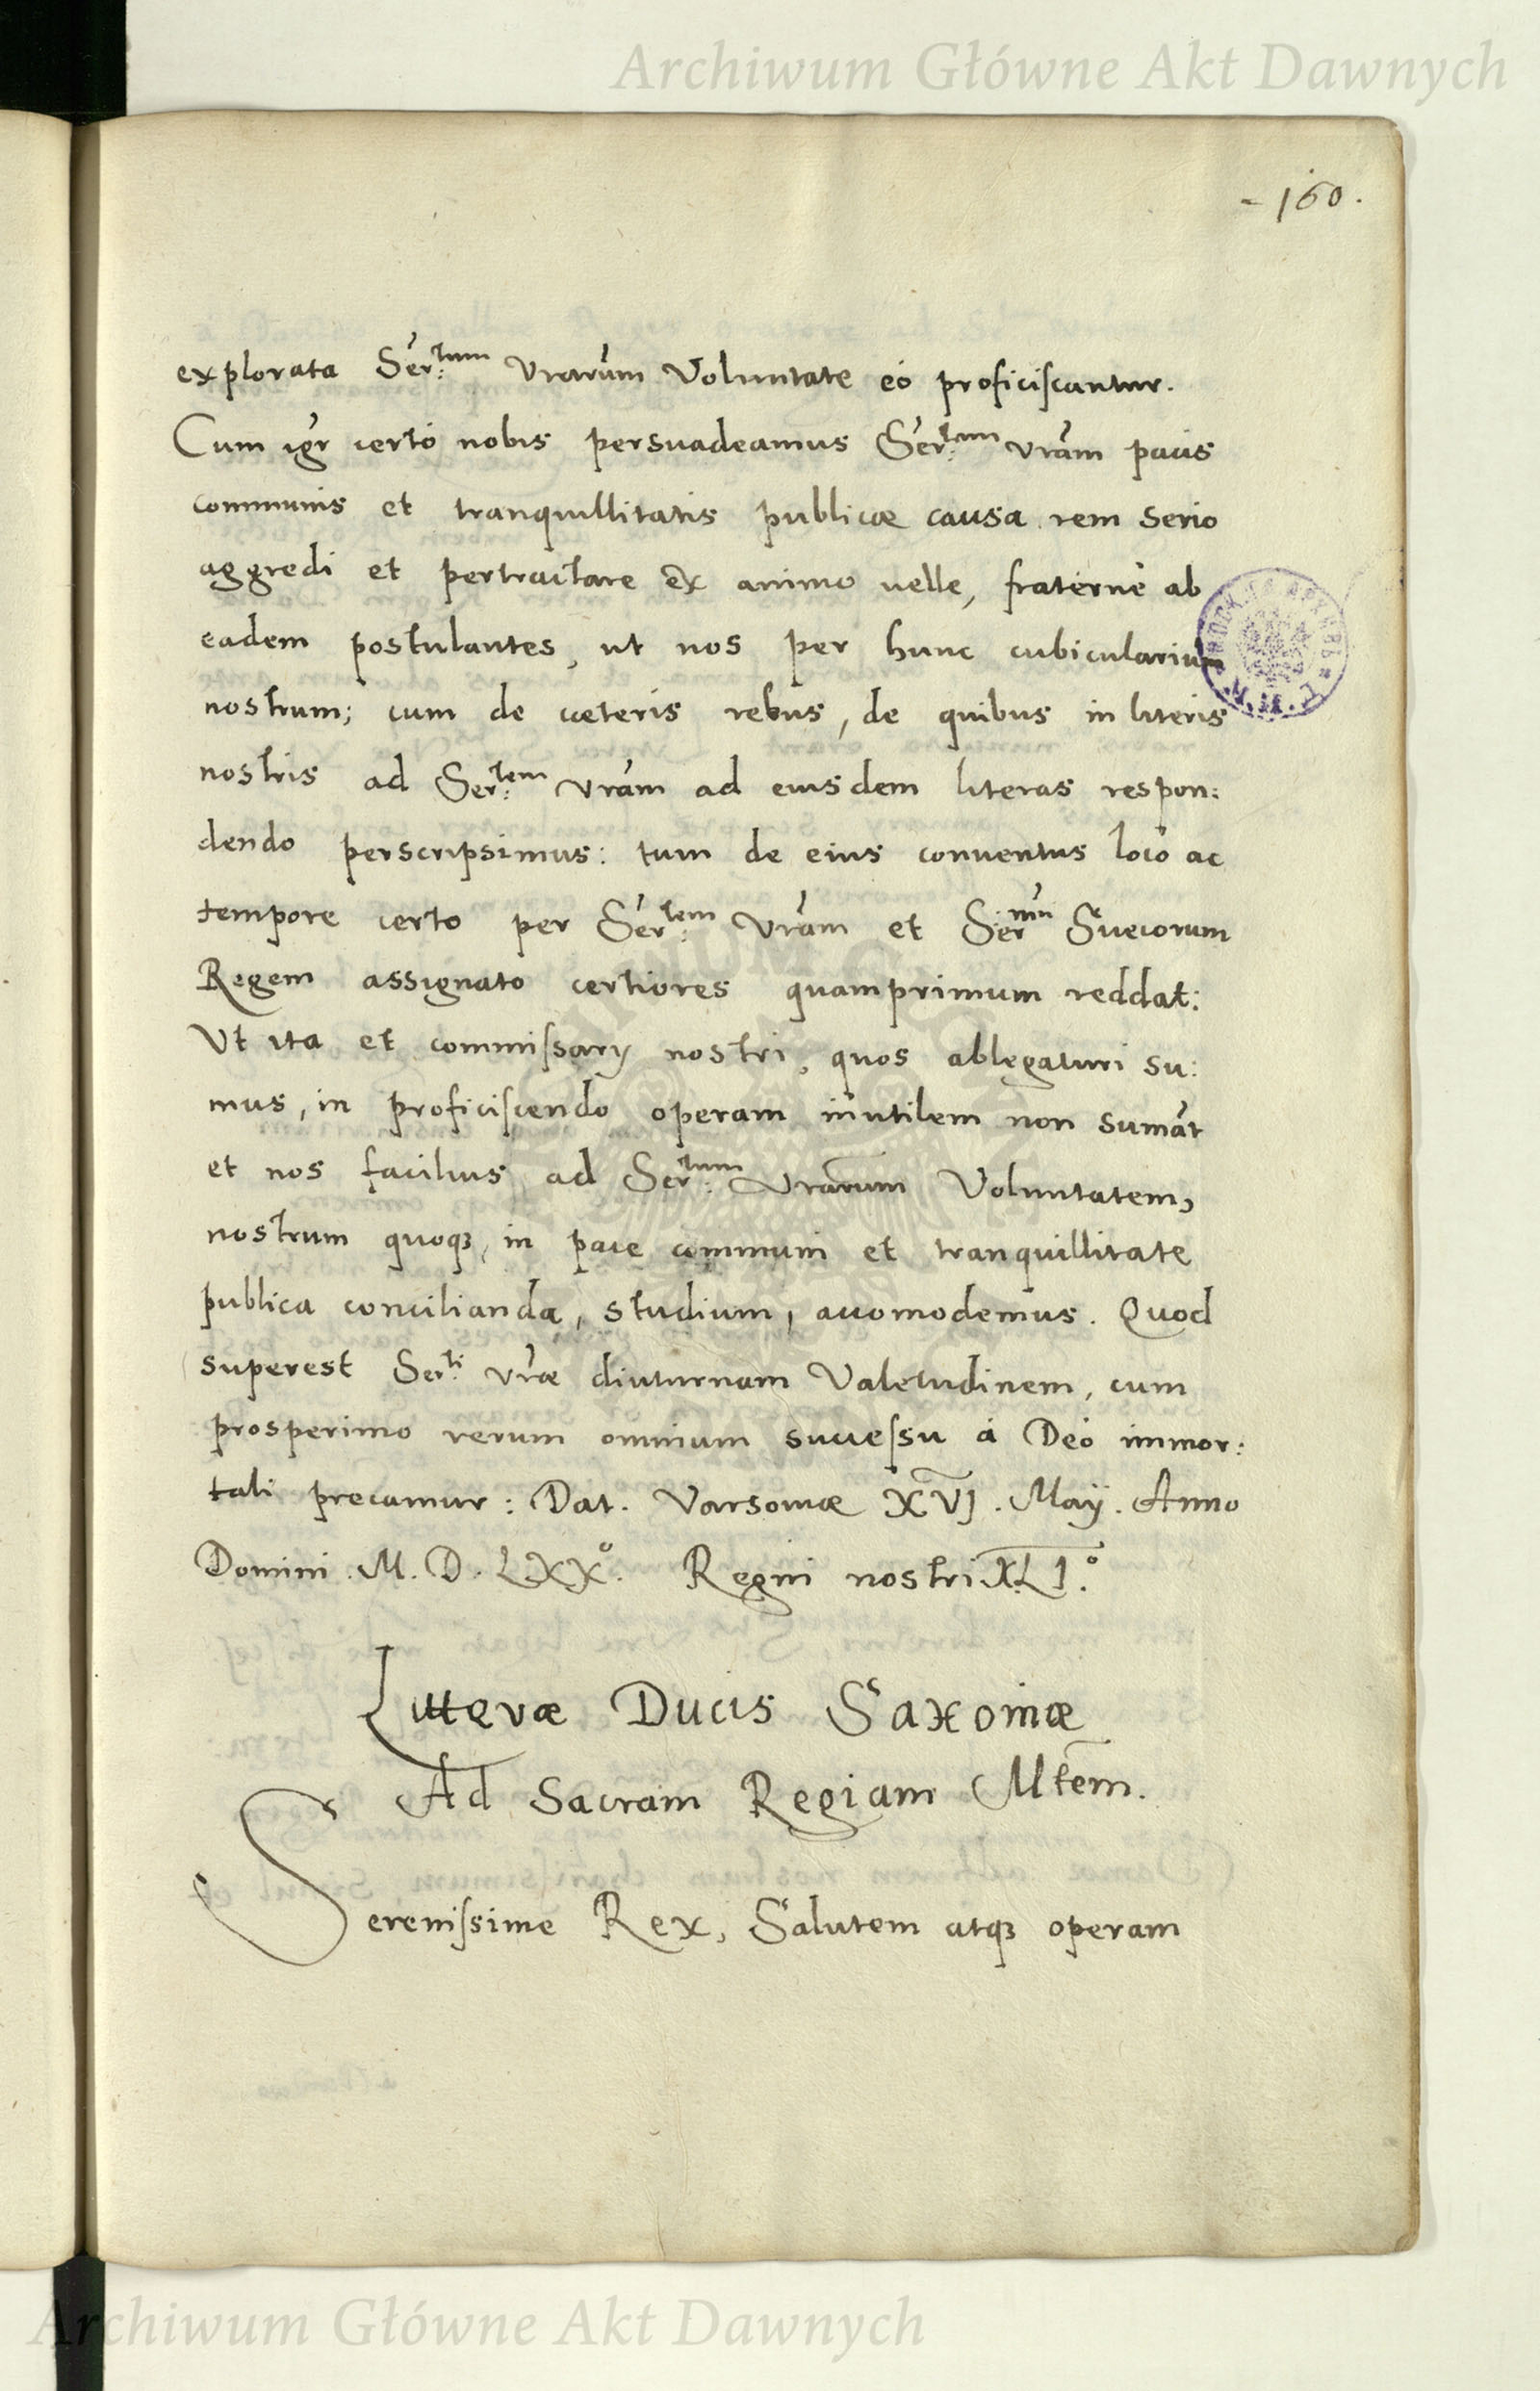 Archiwum Główne Akt Dawnych
- 160.
explorata Ser:tum Vrarum Voluntate eó proficiscantur.
Cum igr certó nobis persuadeamus Ser:tam vram pacis
communis et tranquillitatis publicæ causa rem serio
aggredi et pertractare ex animo uelle, fraternè ab
eadem postulantes, ut nos per hunc cubicularium
nostrum; cum de cæteris rebus, de quibus in literis
nostris ad Ser:tem vram ad eiusdem literas respon:
dendo perscripsimus: tum de eius conuentus loco ac
tempore certo per Ser:tem Vram et Sermu Suecorum
Regem assignato certiores quamprimum reddat:
Vt ita et commissarij nostri, quos ablegaturi su:
mus, in proficiscendo operam inutilem non sumãt
et nos facilius ad Ser:tum Vrarum Voluntatem,
nostrum quoqꝫ, in pace communi et tranquillitate
publica concilianda, studium, accomodemus. Quod
superest Ser:ti vræ diuturnam Valetudinem, cum
prosperimo rerum omnium successu á Deo immor:
tali precamur: Dat. Varsouiæ XVJ. Maÿ. Anno
Domini. M. D. LXXº. Regni nostri XLI.º
Litteræ Ducis Saxoniæ
Ad Sacram Regiam Mtem.
Serenissime Rex, Salutem atqꝫ operam
Archiwum Główne Akt Dawnych